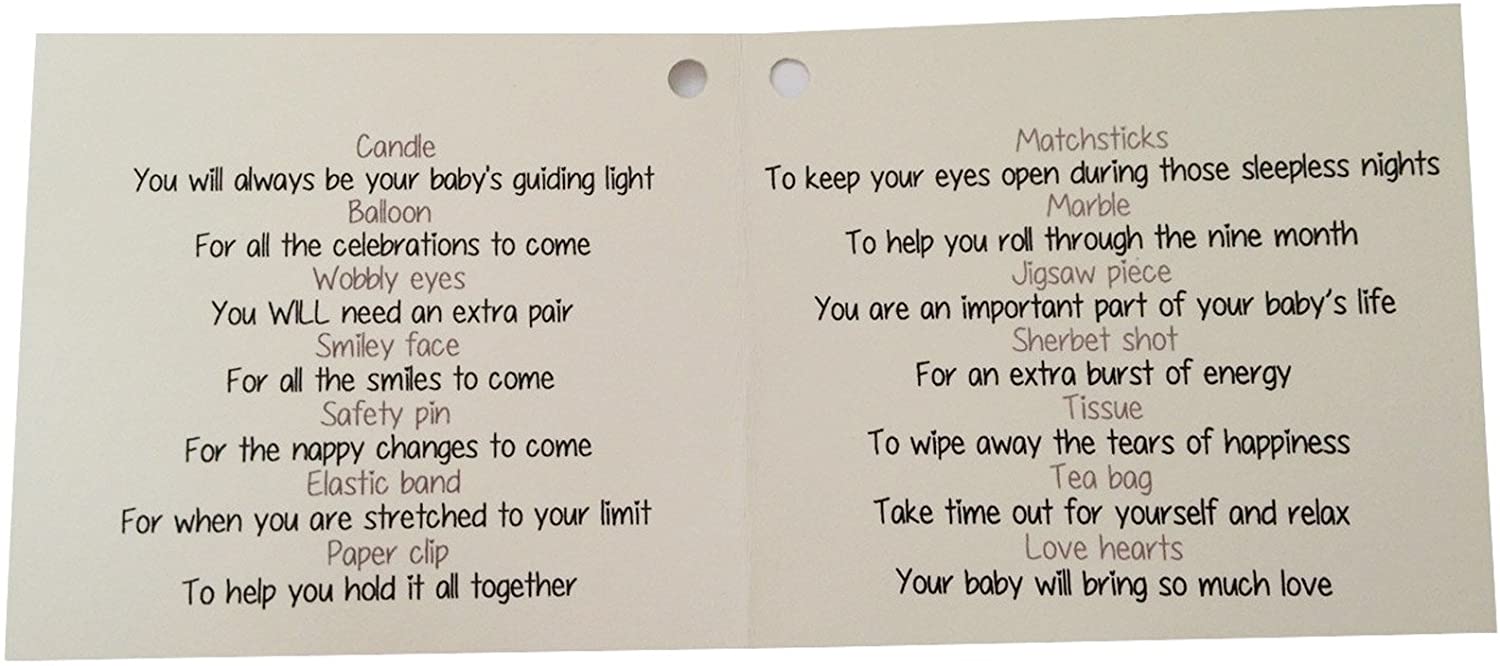 Candle
You will always be your baby's guiding light
Balloon
For all the celebrations to come
Wobbly eyes
You WILL need an extra pair
Smiley face
For all the smiles to come
Safety pin
For the nappy changes to come
Elastic band
For when you are stretched to your limit
Paper clip
To help you hold it all together
Matchsticks
To keep your eyes open during those sleepless nights
Marble
To help you roll through the nine month
Jigsaw piece
You are an important part of your baby's life
Sherbet shot
For an extra burst of energy
Tissue
To wipe away the tears of happiness
Tea bag
Take time out for yourself and relax
Love hearts
Your baby will bring so much love